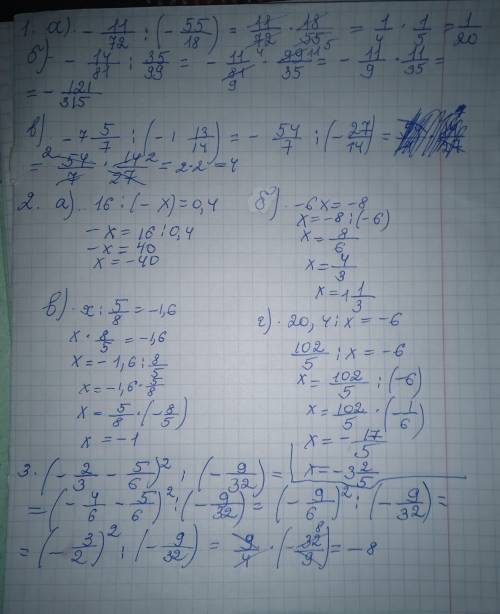 1. а). - 11/72 : (- 55/18) = 11/72 · 18/55 = 1/4 · 1/5 = 1/20
б) - 14/81 : 35/99 = - 11/81 · 99/35 = - 11/9 · 11/35 =
= - 121/315
в) - 7 5/7 : (-1 13/14) = - 54/7 : (- 27/14) =
= 54/7 · 14/27 = 2·2 = 4
2. а). 16 : (- x) = 0,4
- x = 16 : 0,4
- x = 40
x = - 40
б). -6x = -8
x = -8 : (-6)
x = 8/6
x = 4/3
x = 1 1/3
в). x : 5/8 = -1,6
x · 8/5 = -1,6
x = - 1,6 : 8/5
x = -1,6 · 5/8
x = 5/8 · (- 8/5)
x = -1
г). 20,4 : x = -6
102/5 : x = -6
x = 102/5 : (-6)
x = 102/5 · (- 1/6)
x = - 17/5
x = -3 2/5
3. (- 2/3 - 5/6)² : (- 9/32) =
= (- 4/6 - 5/6)² : (- 9/32) = (- 9/6)² : (- 9/32) =
= (- 3/2)² : (- 9/32) = 9/4 · (- 32/9) = -8